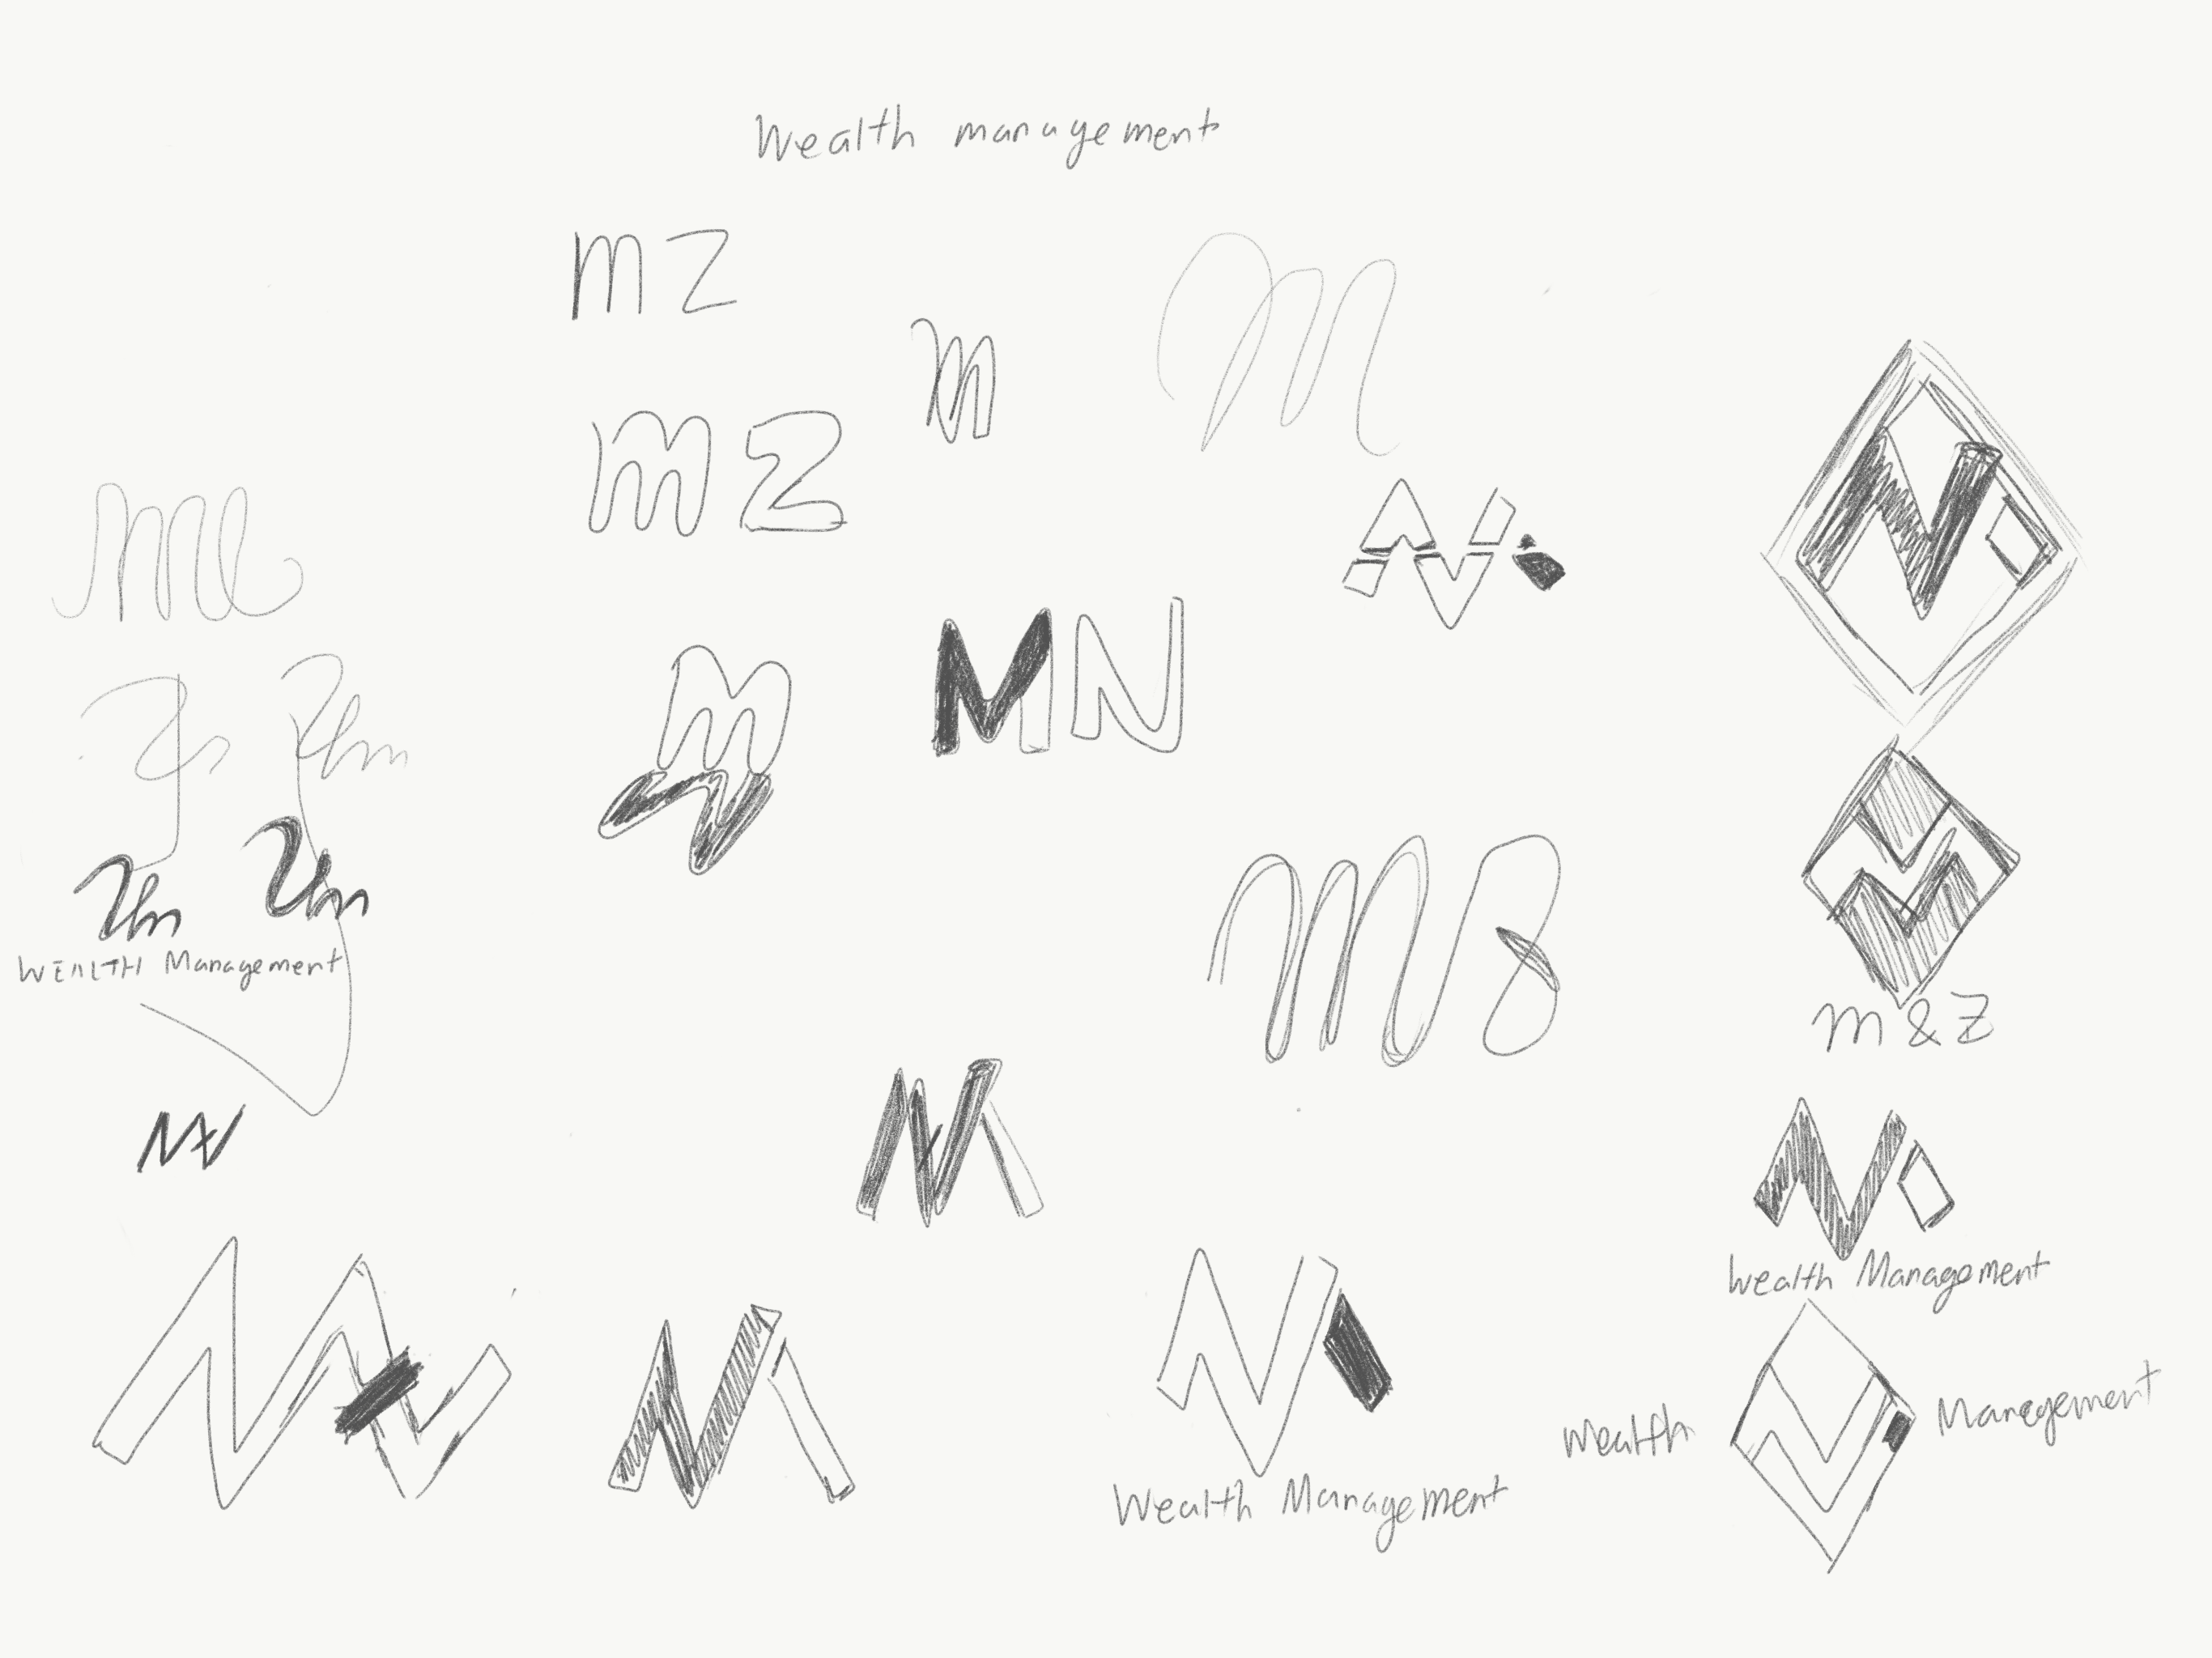 Wealth management
m z
m
m
m z
m
M N
Zm
Zm
WEALTH Management
m & z
Wealth Management
Wealth Management
Wealth Management